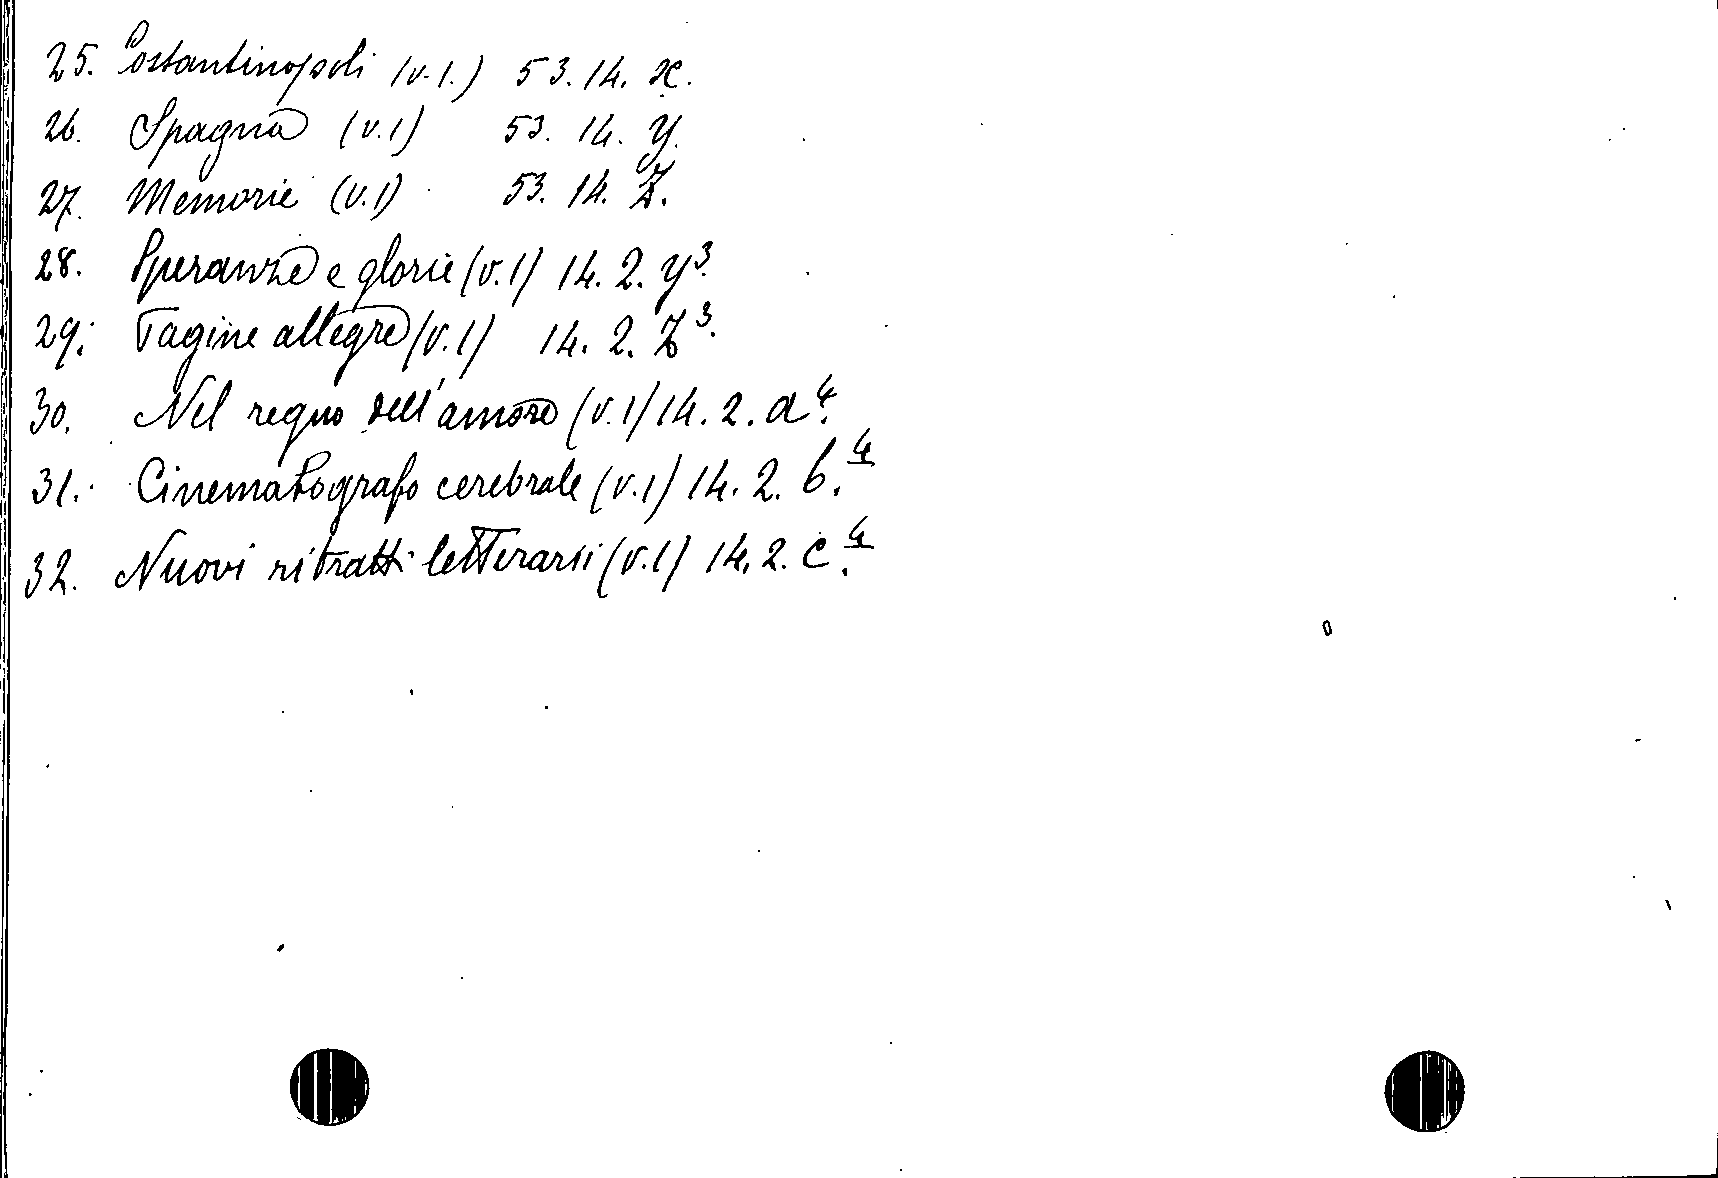 25. Costantinopoli (v.1.) 53.14. x.
26. Spagna (v.1) 53. 14. y.
27. Memorie (v.1) 53. 14. Z.
28. Speranze e glorie (v.1) 14. 2. y³.
29. Pagine allegre (v.1) 14. 2. Z³.
30. Nel regno dell'amore (v.1) 14. 2. a⁴.
31. Cinematografo cerebrale (v.1) 14. 2. b.⁴
32. Nuovi ritratti letterarii (v.1) 14. 2. c.⁴